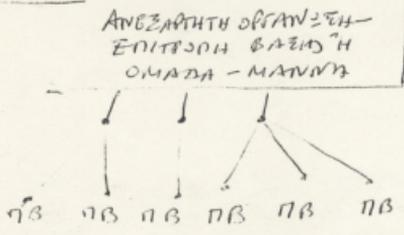 ΑΝΕΞΑΡΤΗΤΗ ΟΡΓΑΝΩΣΗ -
ΕΠΙΤΡΟΠΗ ΒΑΣΗΣ Ή
ΟΜΑΔΑ - ΜΑΝΝΑ
ΠΒ ΠΒ ΠΒ ΠΒ ΠΒ ΠΒ